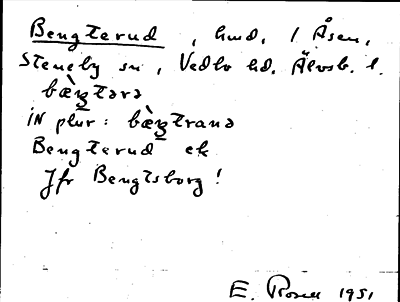 Bengterud, hmd. / Åsen,
Steneby sn, Vedbo hd. Älvsb. l.
bæ̀ŋtərə
IN plur: bæ̀ŋtrana
Bengterud ek
Jfr Bengtsborg!
E. Rosell 1951